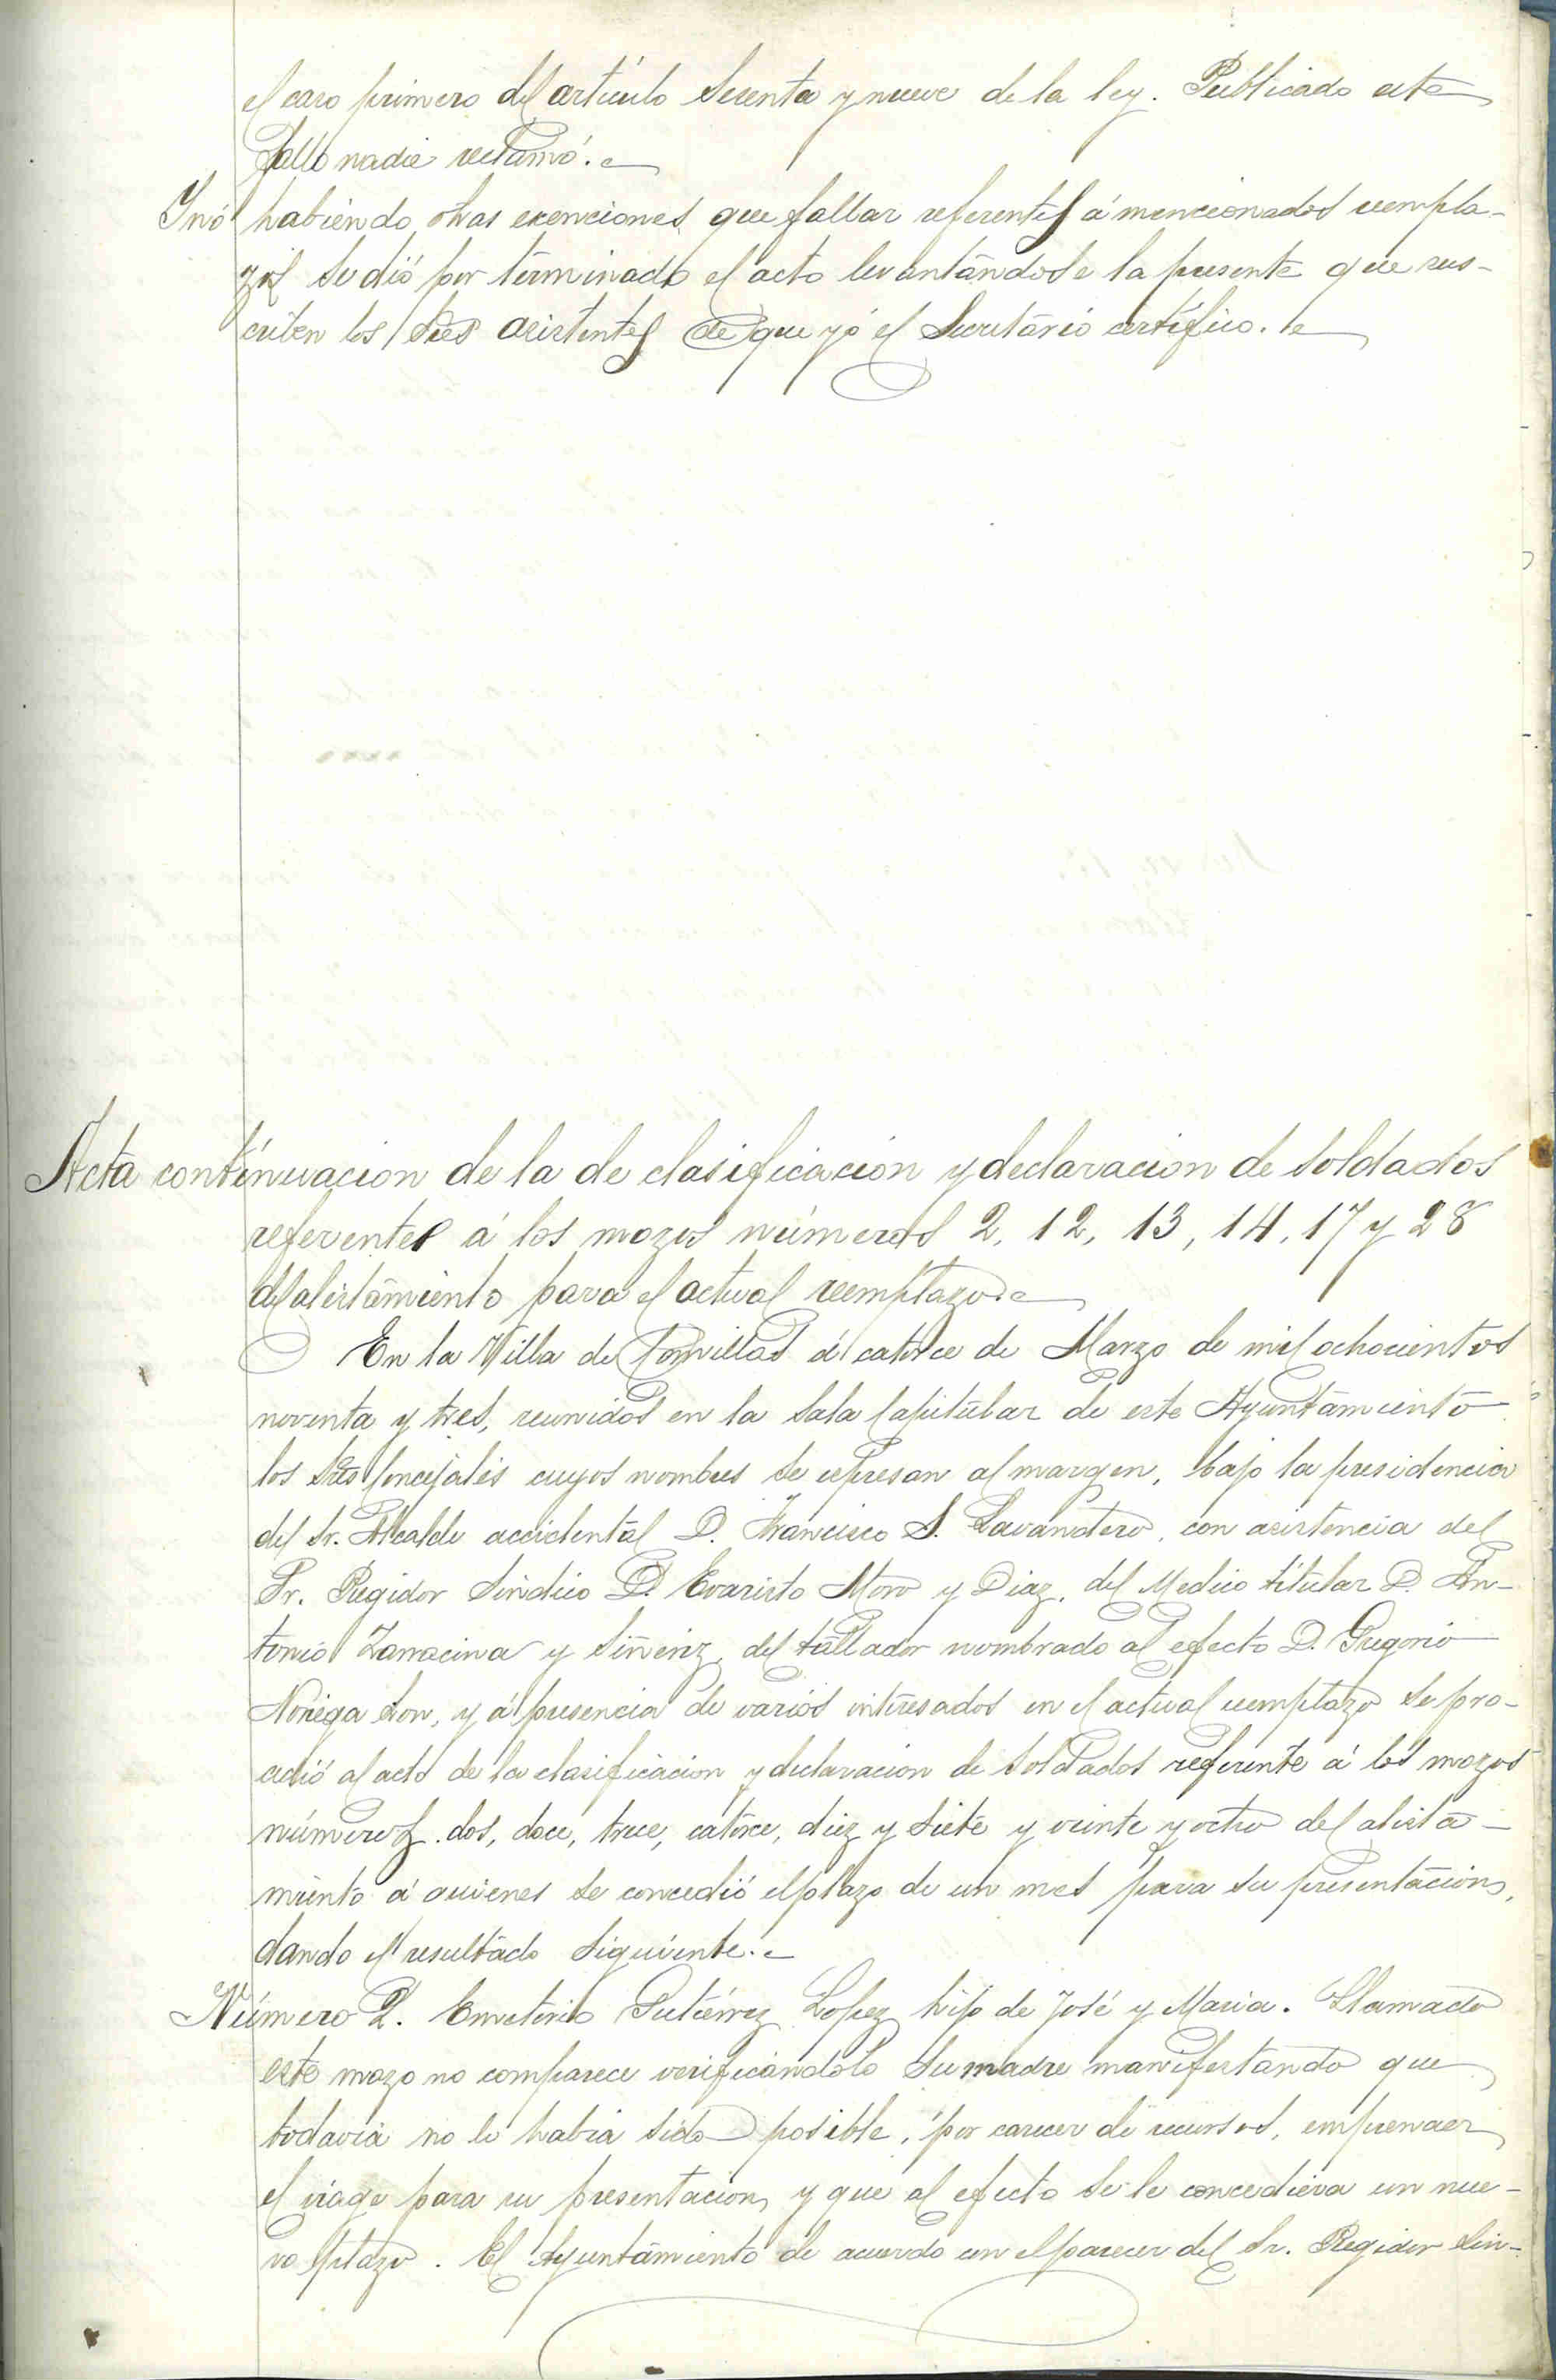 el caso primero del artículo sesenta y nueve de la ley. Publicado este
fallo nadie reclamó.
Y nó habiendo otras exenciones que fallar referentes á mencionados reempla-
zos se dió por terminado el acto levantándose la presente que sus-
criben los Sres asistentes de que yó el Secretário certífico.
Acta continuacion de la de clasificacion y declaracion de soldados
referentes á los mozos números 2, 12, 13, 14, 17 y 28
del alistamiento para el actual reemplazo.
En la Villa de Comillas á catorce de Marzo de mil ochocientos
noventa y tres, reunidos en la Sala Capitular de este Ayuntamiento
los Sres Concejales cuyos nombres se espresan al margen, bajo la presidencia
del Sr. Alcalde accidental D. Francisco S. Lavandero, con asistencia del
Sr. Regidor Síndico D. Evaristo Moro y Diaz, del Medico titular D. An-
tonio Zarracina y del tallador nombrado al efecto D. Gregorio
Noriega y á presencia de varios interesados en el actual reemplazo se pro-
cedió al acto de la clasificacion y declaracion de soldados referente á los mozos
números dos, doce, trece, catorce, diez y siete y veinte y ocho del alista-
miento á quienes se concedió el plazo de un mes para su presentacion,
dando el resultado siguiente.
Número 2. Emeterio Gutiérrez Lopez hijo de José y Maria. Llamado
este mozo no comparece verificándolo su madre manifestando que
todavia no le habia sido posible, por carecer de recursos, emprender
el viage para su presentacion, y que al efecto se le concediera un nue-
vo plazo. El Ayuntamiento de acuerdo con el parecer del Sr. Regidor Sín-